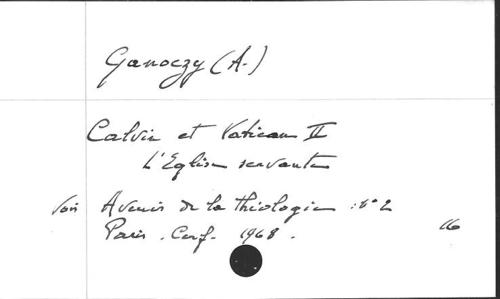 Ganoczy (A.)
Calvin et Vatican II
L'Eglise servante
Voir Avenir de la théologie : n° 2
Paris. Cerf. 1968. 16